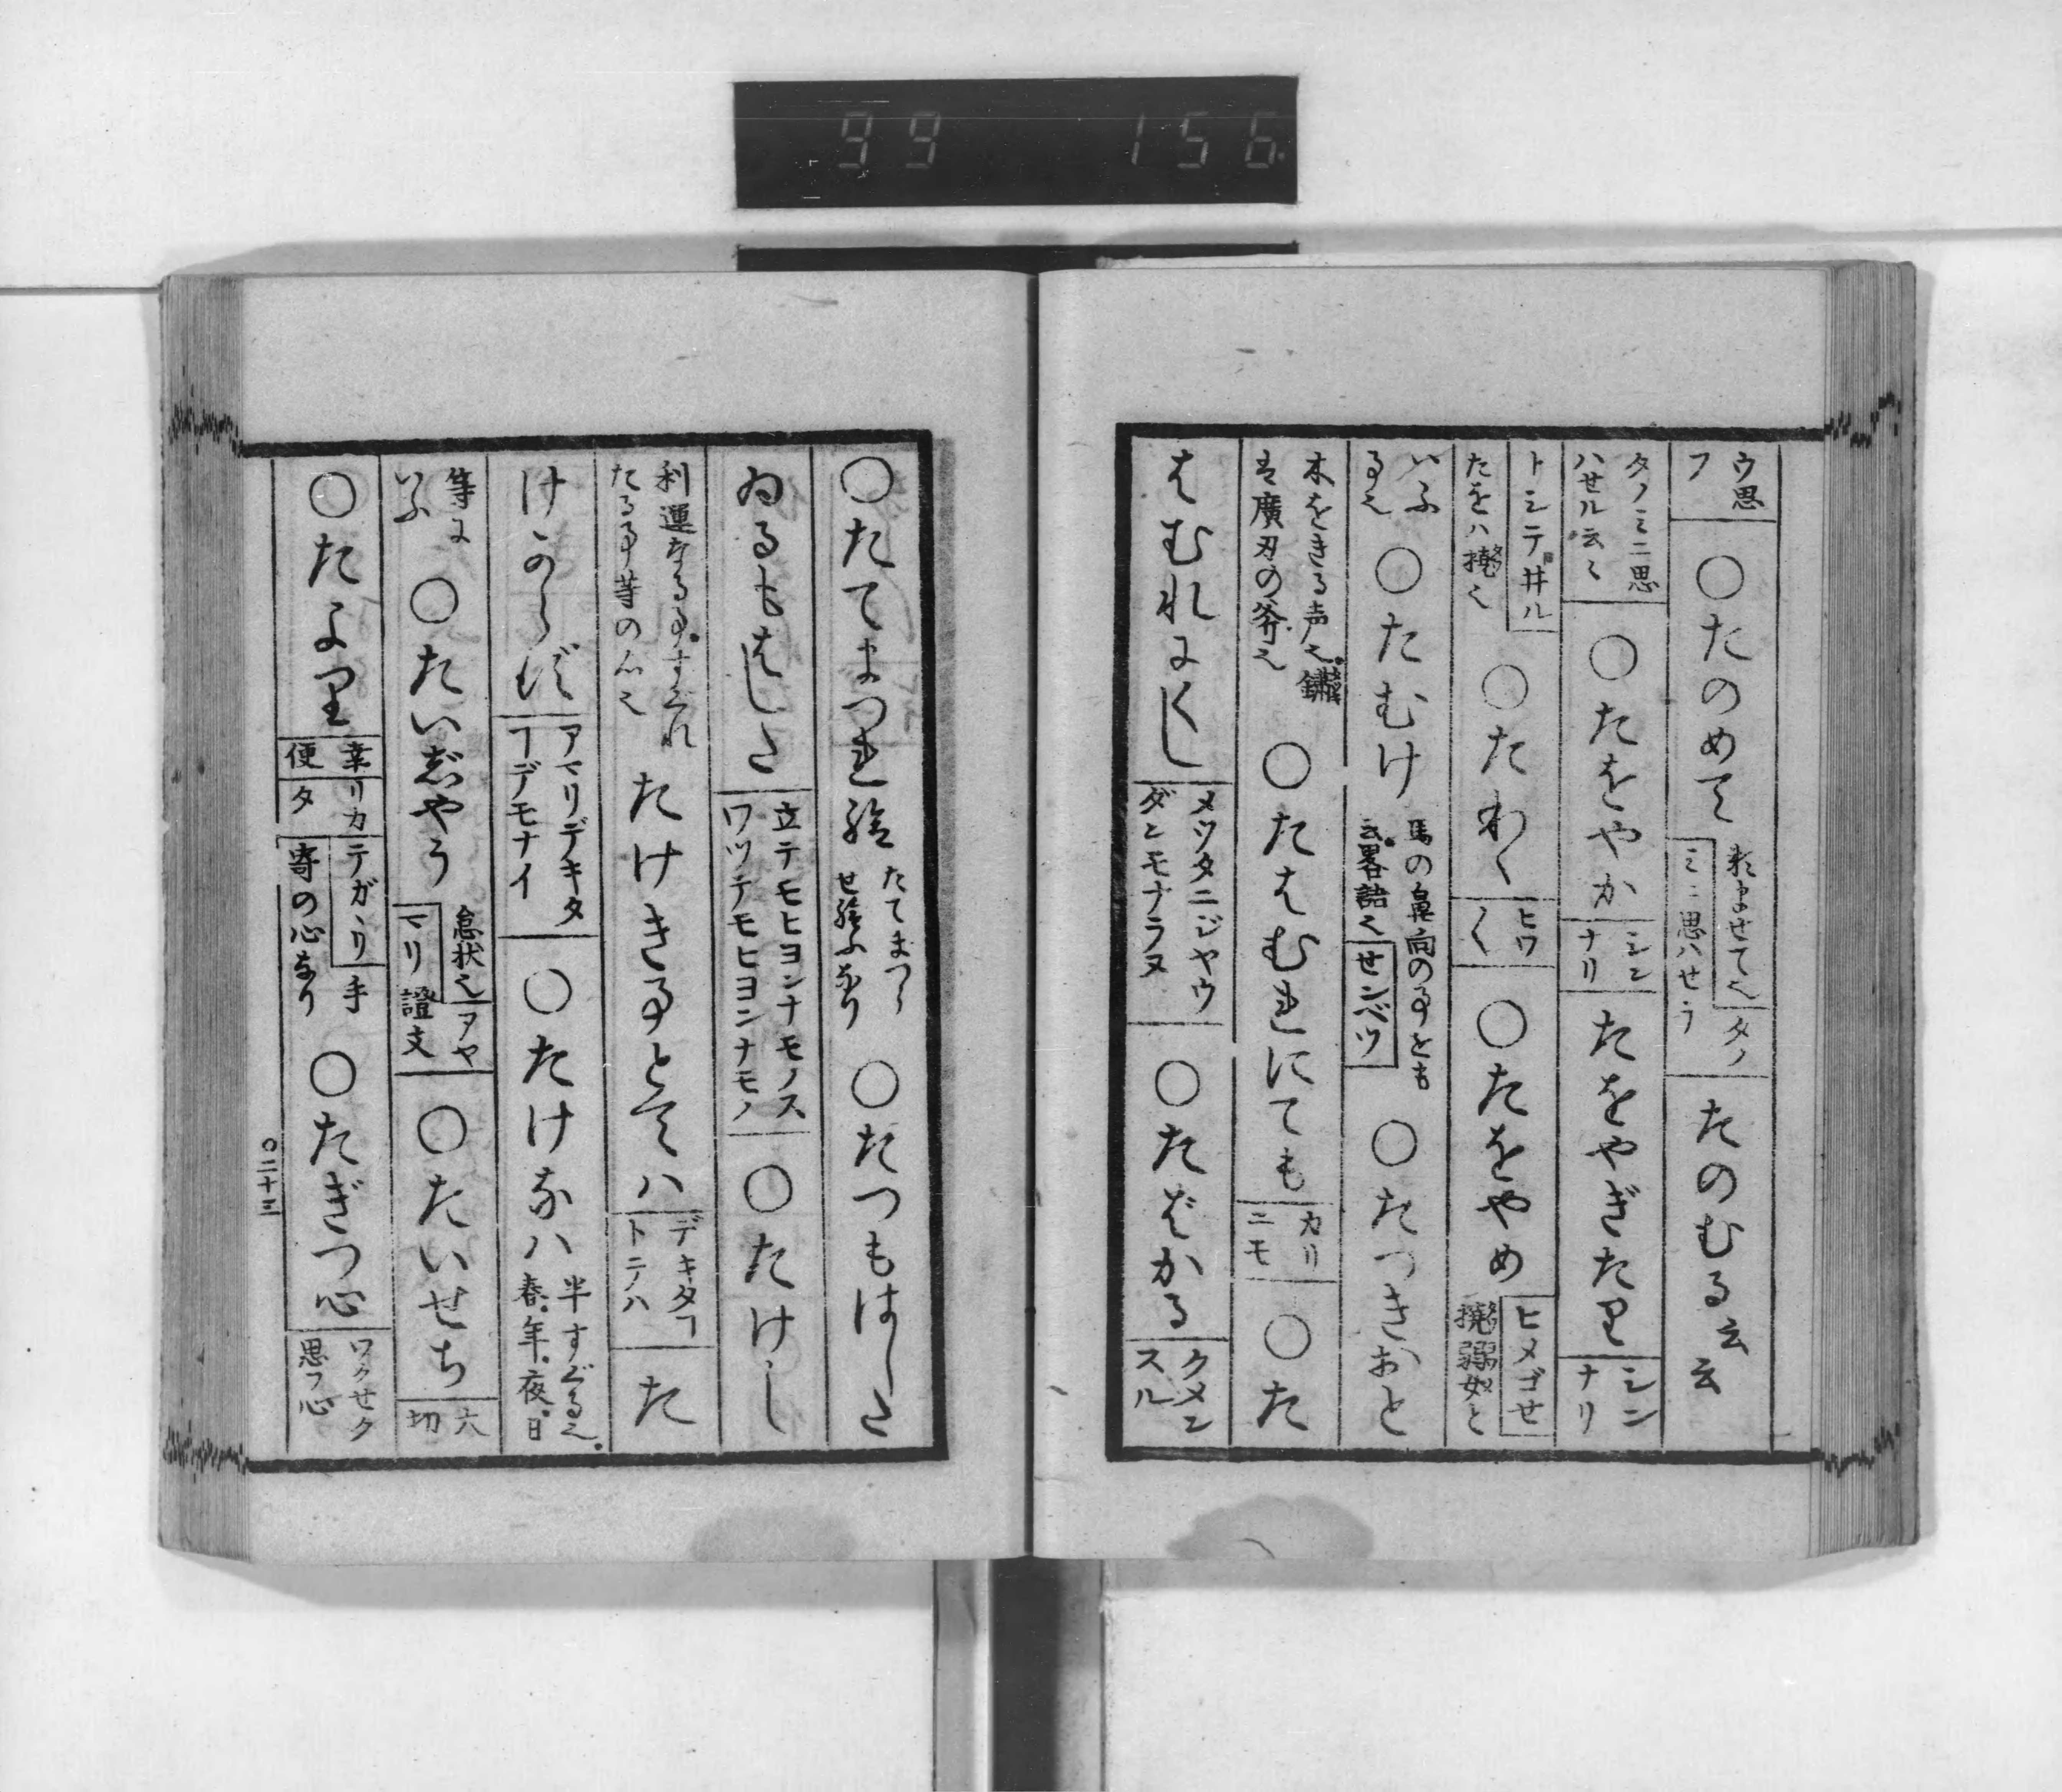 99 156
ウ思フ ○たのめて 頼ませて也 タノミニ思ハせラ たのむる云云
タノミニ思ハせル云々 ○たをやか シンナリ たをやぎたり シンナリ
トシテ井ル たをハ撓也 ○たわく ヒワ〱 ○たをやめ ヒメゴせ 撓弱女と
いふる也 ○たむけ 馬の鼻向の事とも云畧語也 せンベツ ○たつきおと
木をきる声也 は廣刃の斧也 ○たはむれにても カリニモ ○た
はむれにくし メツタニジヤウダンモナラヌ ○たばかる クメンスル
○たてまつれ給 たてまつらせ給ふなり ○たつもはした
ゐるもはした 立テモヒヨンナモノスワツテモヒヨンナモノ ○たけし
利運なる事すぐれたる事等の心也 たけき事とてハ デキタヿトテハ た
けからず アマリデキタヿデモナイ ○たけなハ 半すぐる也 春年夜日
等にいふ ○たいじやう 怠状也 アヤマリ證文 ○たいせち 大切
○たより 幸便 リカタ テガヽリ 手寄の心なり ○たぎつ心 ワクせク思フ心
○二十三